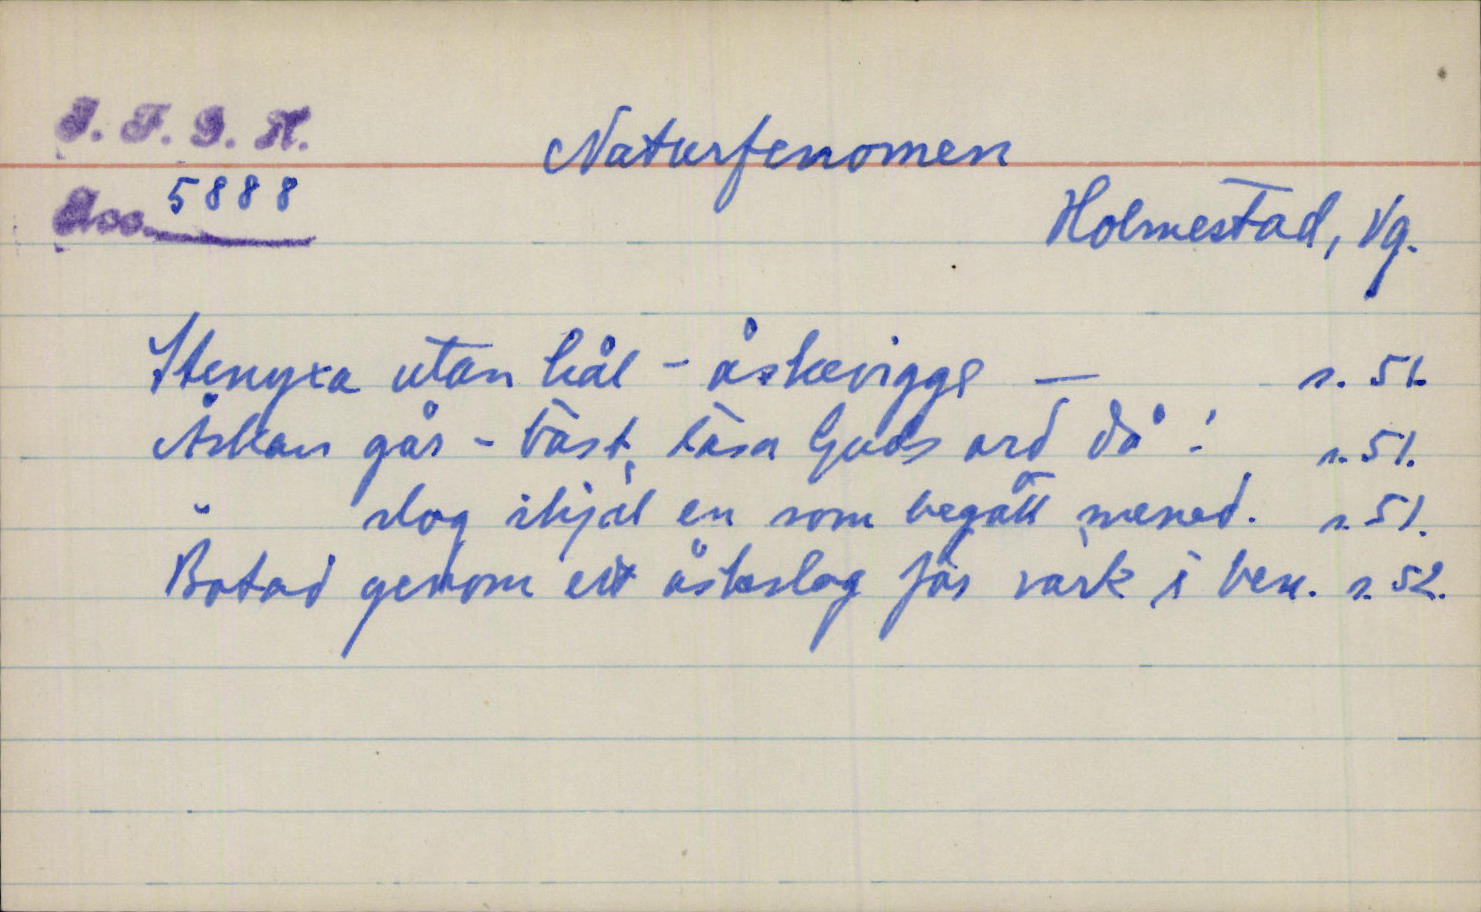 I. F. G. H.
Naturfenomen
Acc. 5888
Holmestad, Vg.
Stenyxa utan hål - åskevigge — s. 51.
Åskan går - bäst läsa Guds ord då! s. 51.
" slog ihjäl en som begått mened. s. 51.
Botad genom ett åskslag för värk i ben. s. 52.